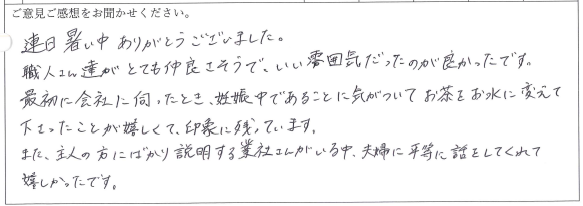 ご意見ご感想をお聞かせください。
連日暑い中ありがとうございました。
職人さん達がとても仲良さそうで、いい雰囲気だったのが良かったです。
最初に会社に伺ったとき、妊娠中であることに気がついてお茶をお水に変えて
下さったことが嬉しくて、印象に残っています。
また、主人の方にばかり説明する業社さんがいる中、夫婦に平等に話をしてくれて
嬉しかったです。